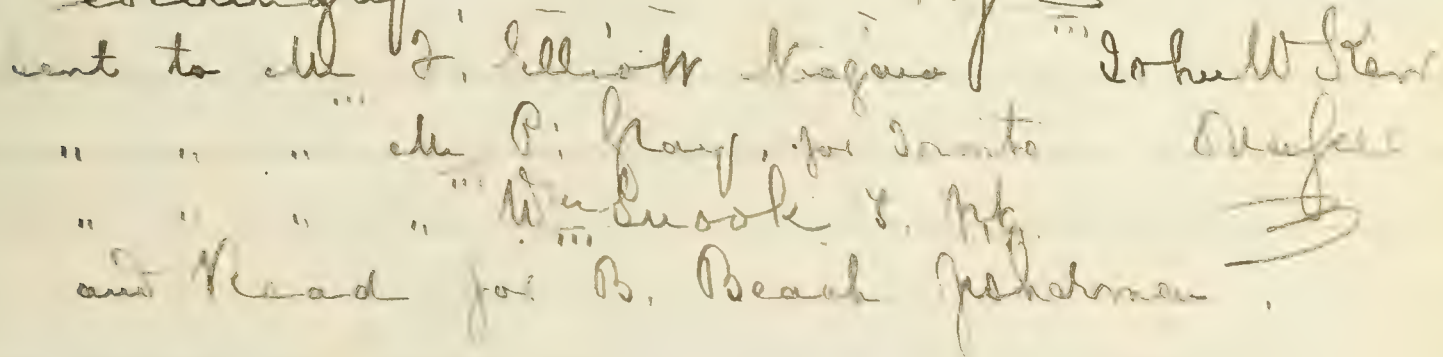 sent to Mr F. Elliott Niagara John W Kerr
" " " Mr P. Gray, for Toronto Overseer
" " " " Wm Snook
and Read for B. Beach fishermen.